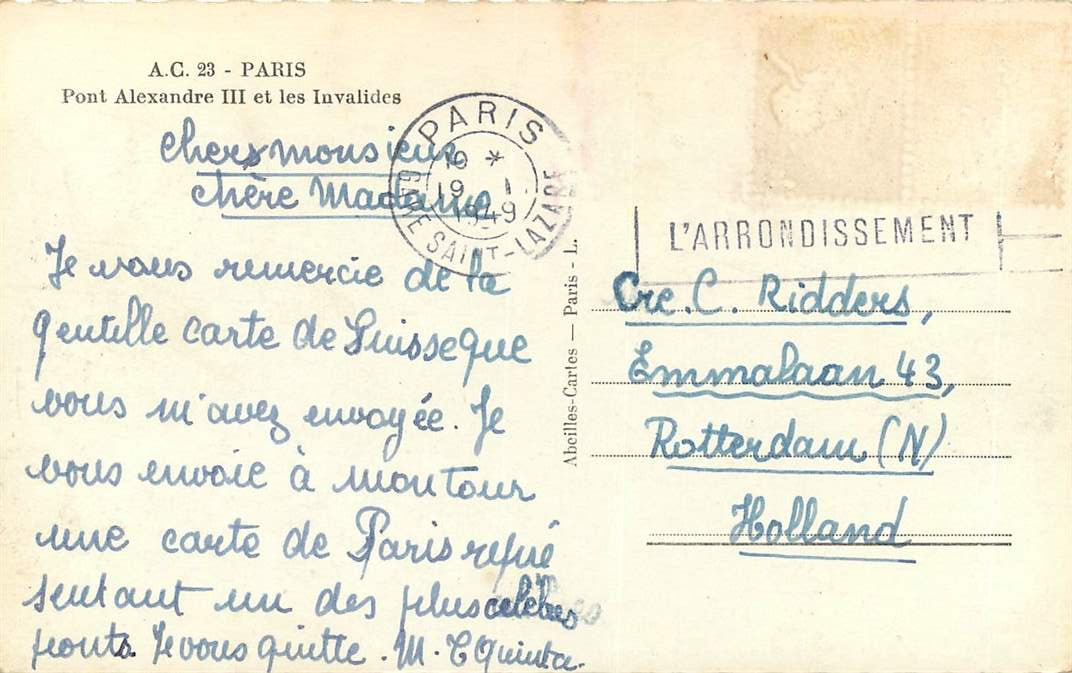 A.C. 23 - PARIS
Pont Alexandre III et les Invalides
Chers monsieur
chère Madame
Je vous remercie de la
gentille carte de Suisse que
vous m'avez envoyée. Je
vous envoie à mon tour
une carte de Paris repré
sentant un des plus célèbres
ponts. Je vous quitte. M.
PARIS
GARE SAINT-LAZARE
19 - 1
1949
Abeilles-Cartes — Paris - L.
L'ARRONDISSEMENT
C. Ridders,
Emmalaan 43,
Rotterdam (N)
Holland